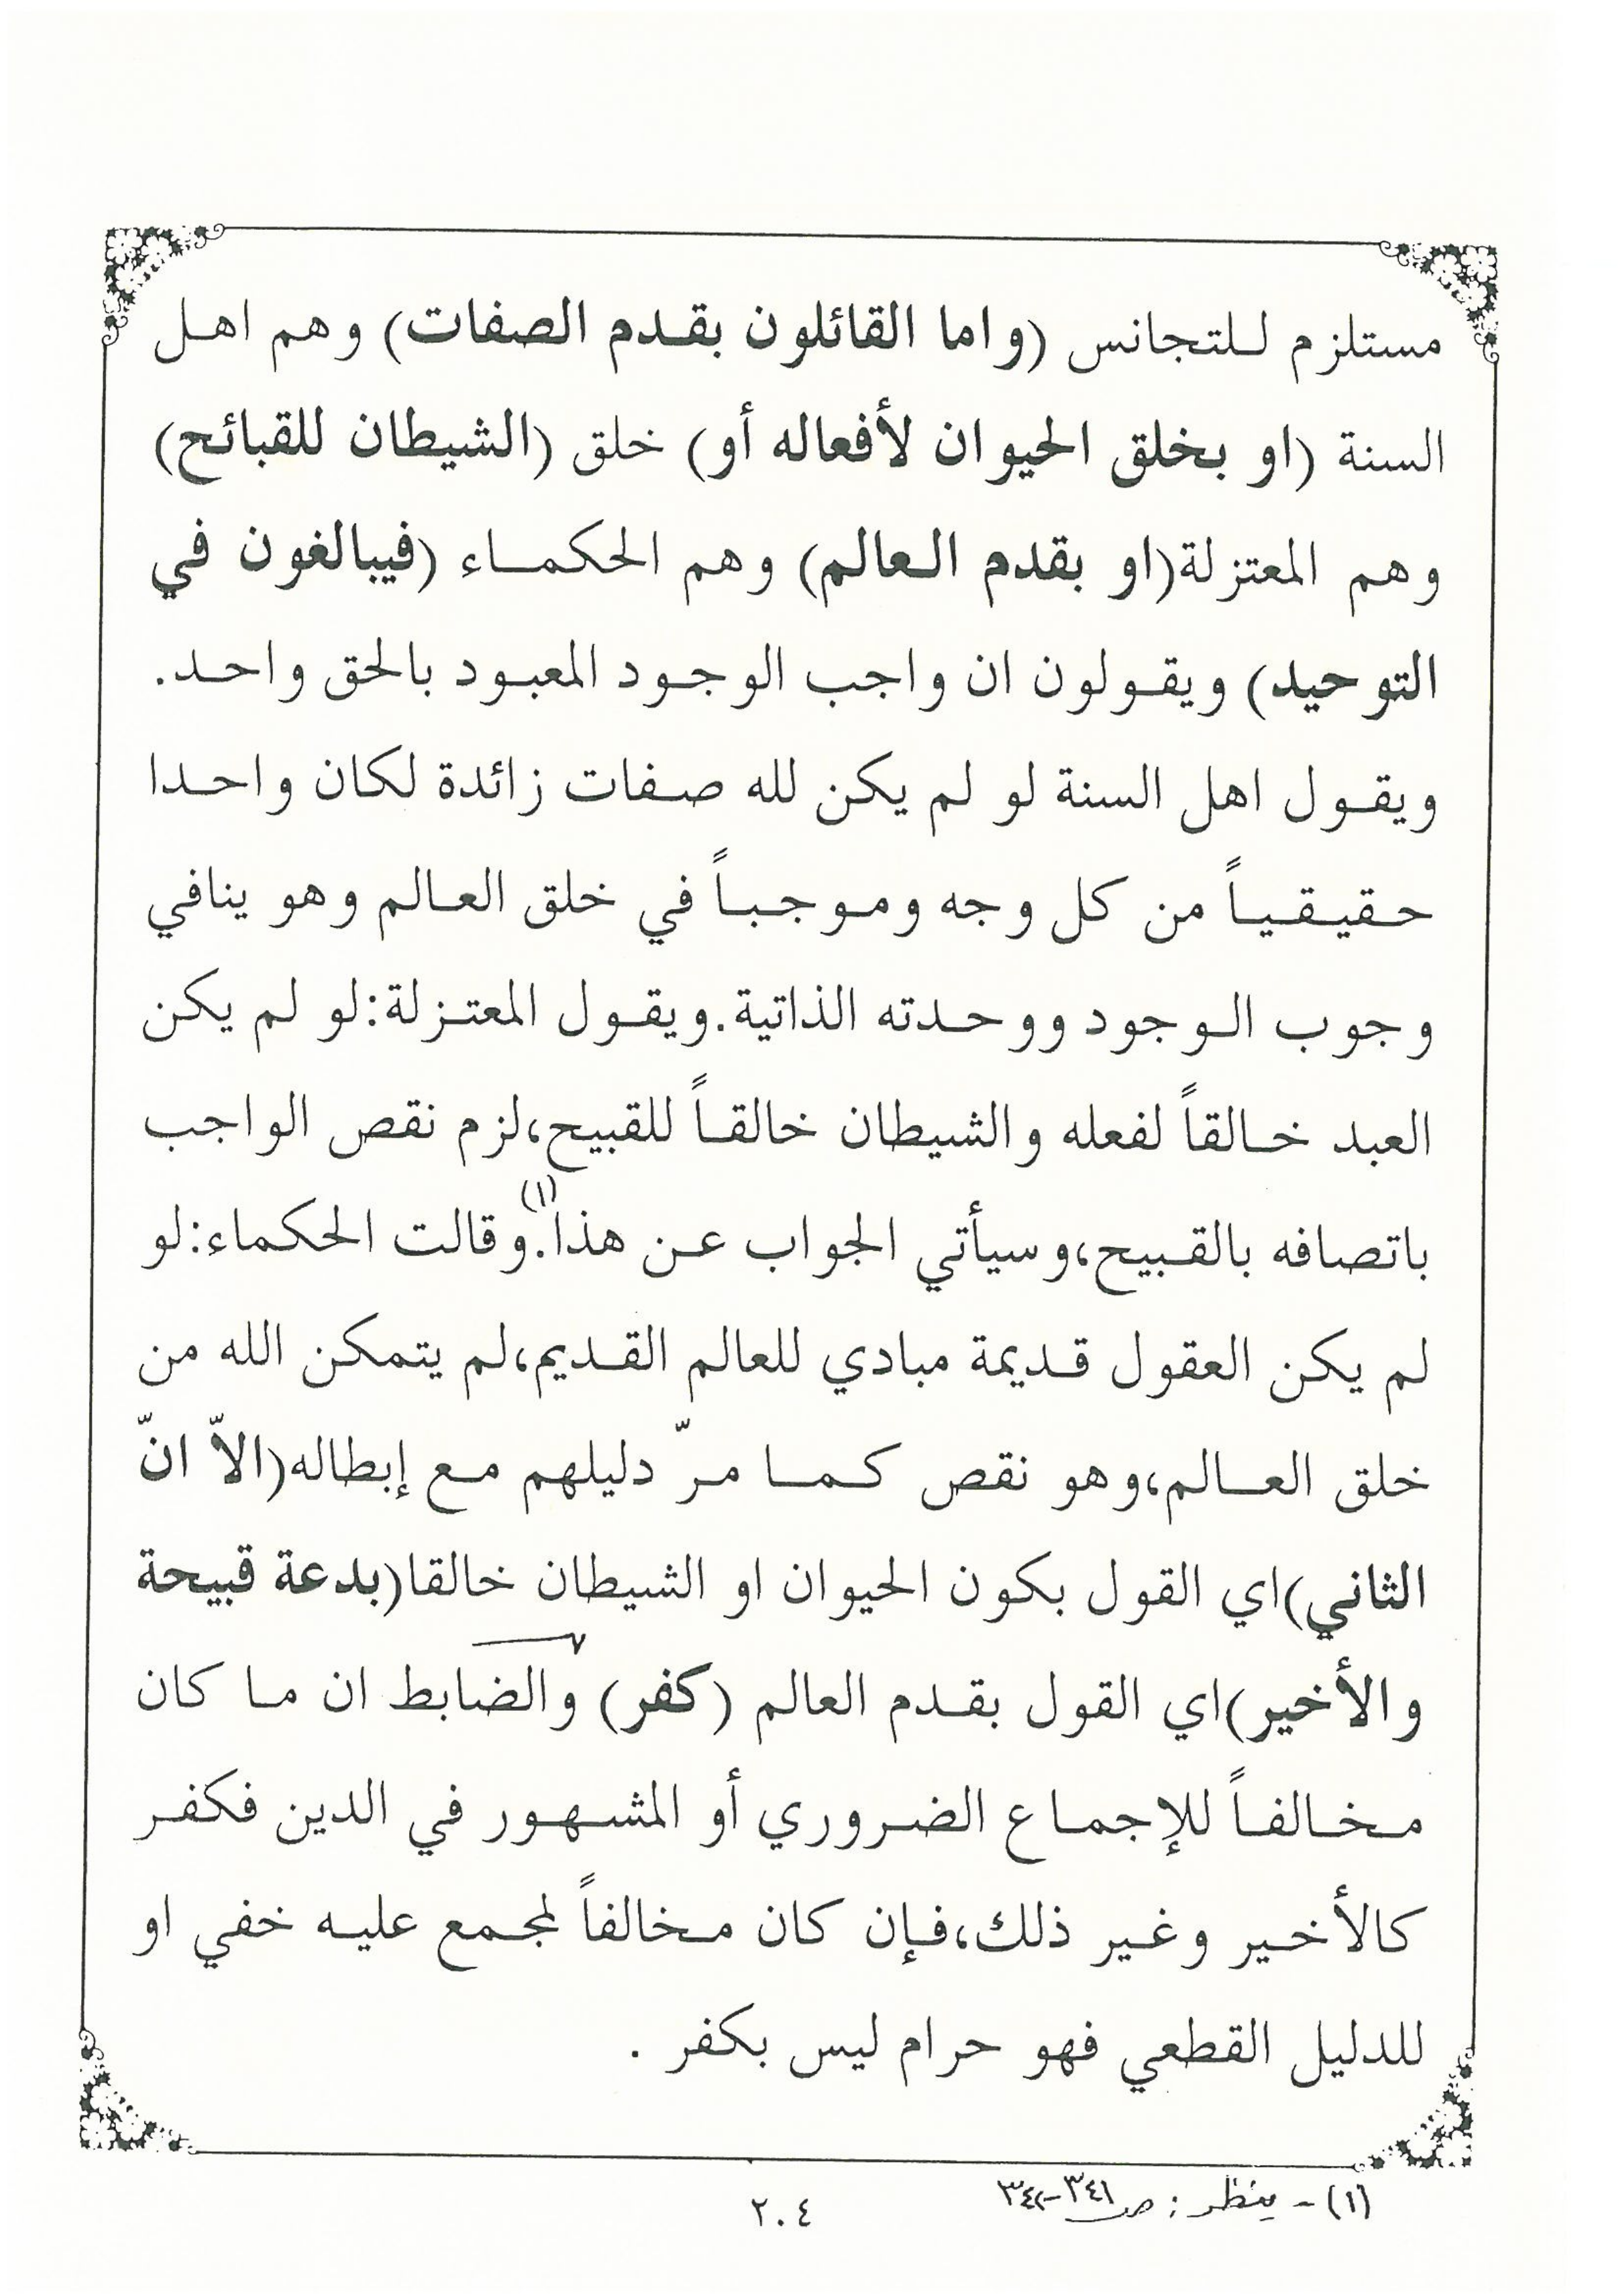 مستلزم للتجانس (واما القائلون بقدم الصفات) وهم اهل
السنة (او بخلق الحيوان لأفعاله أو) خلق (الشيطان للقبائح)
وهم المعتزلة(او بقدم العالم) وهم الحكماء (فيبالغون في
التوحيد) ويقولون ان واجب الوجود المعبود بالحق واحد.
ويقول اهل السنة لو لم يكن لله صفات زائدة لكان واحدا
حقيقياً من كل وجه وموجباً في خلق العالم وهو ينافي
وجوب الوجود ووحدته الذاتية.ويقول المعتزلة:لو لم يكن
العبد خالقاً لفعله والشيطان خالقاً للقبيح،لزم نقص الواجب
باتصافه بالقبيح،وسيأتي الجواب عن هذا(١).وقالت الحكماء:لو
لم يكن العقول قديمة مبادي للعالم القديم،لم يتمكن الله من
خلق العالم،وهو نقص كما مرّ دليلهم مع إبطاله(الاّ انّ
الثاني)اي القول بكون الحيوان او الشيطان خالقا(بدعة قبيحة
والأخير)اي القول بقدم العالم (كفر) والضابط ان ما كان
مخالفاً للإجماع الضروري أو المشهور في الدين فكفر
كالأخير وغير ذلك،فإن كان مخالفاً لمجمع عليه خفي او
للدليل القطعي فهو حرام ليس بكفر .
(١) - ينظر : ص٣٤١-٣٤٢
٢٠٤